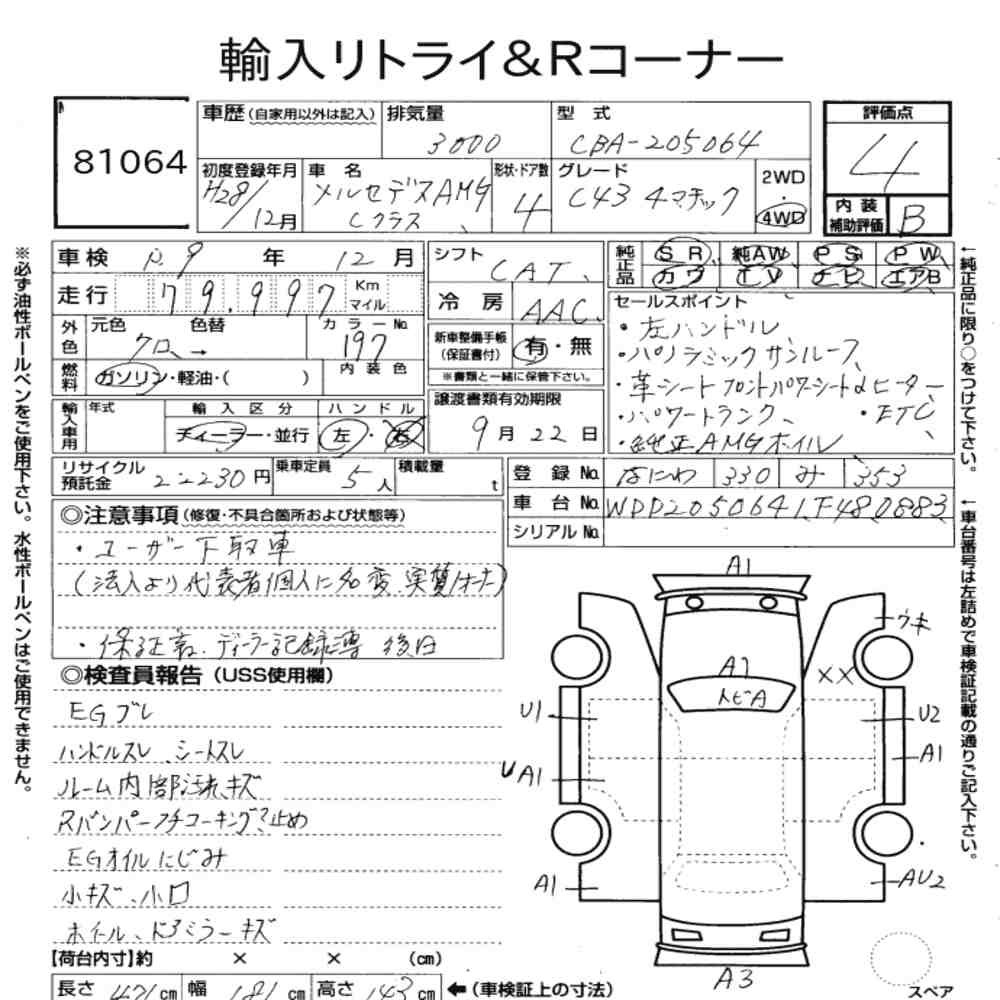 輸入リトライ&Rコーナー
81064
車歴(自家用以外は記入) 排気量 3000 型式 CBA-205064 評価点 4
初度登録年月 H28/12月 車名 メルセデスAMG Cクラス 形状・ドア数 4 グレード C43 4マチック 2WD・4WD 内装補助評価 B
車検 R9年 12月 シフト CAT 純正品 SR 純AW PS PW カワ TV ナビ エアB
走行 79.997 Km マイル 冷房 AAC セールスポイント
外色 元色 クロ 色替 → カラーNo. 197 内装色 新車整備手帳(保証書付) 有・無
※書類と一緒に保管下さい。
・左ハンドル
・パノラミックサンルーフ
・革シート フロントパワーシート&ヒーター
・パワートランク、 ・ETC
・純正AMGホイル
燃料 ガソリン・軽油・( )
譲渡書類有効期限 9月22日
輸入車用 年式 輸入区分 ディーラー・並行 ハンドル 左・右
リサイクル預託金 22230円 乗車定員 5人 積載量 t
登録No. なにわ 330 み 353
車台No. WDD2050641F480883
シリアルNo.
◎注意事項(修復・不具合箇所および状態等)
・ユーザー下取車
(法人より代表者個人に名変、実質1オーナー)
・保証書、ディーラー記録簿 後日
◎検査員報告(USS使用欄)
EGブレ
ハンドルスレ シートスレ
ルーム内部汚れ、キズ
Rバンパーフチコーキング?止め
EGオイルにじみ
小キズ、小凹
ホイール、ドアミラーキズ
【荷台内寸】約 × × (cm)
長さ 471cm 幅 181cm 高さ 143cm ←(車検証上の寸法)
A1
ウキ
A1
トビA
XX
U1
U2
UA1
A1
A1
AU2
A3
スペア
※必ず油性ボールペンをご使用下さい。水性ボールペンはご使用できません。
←純正品に限り○をつけて下さい。
←車台番号は左詰めで車検証記載の通りご記入下さい。